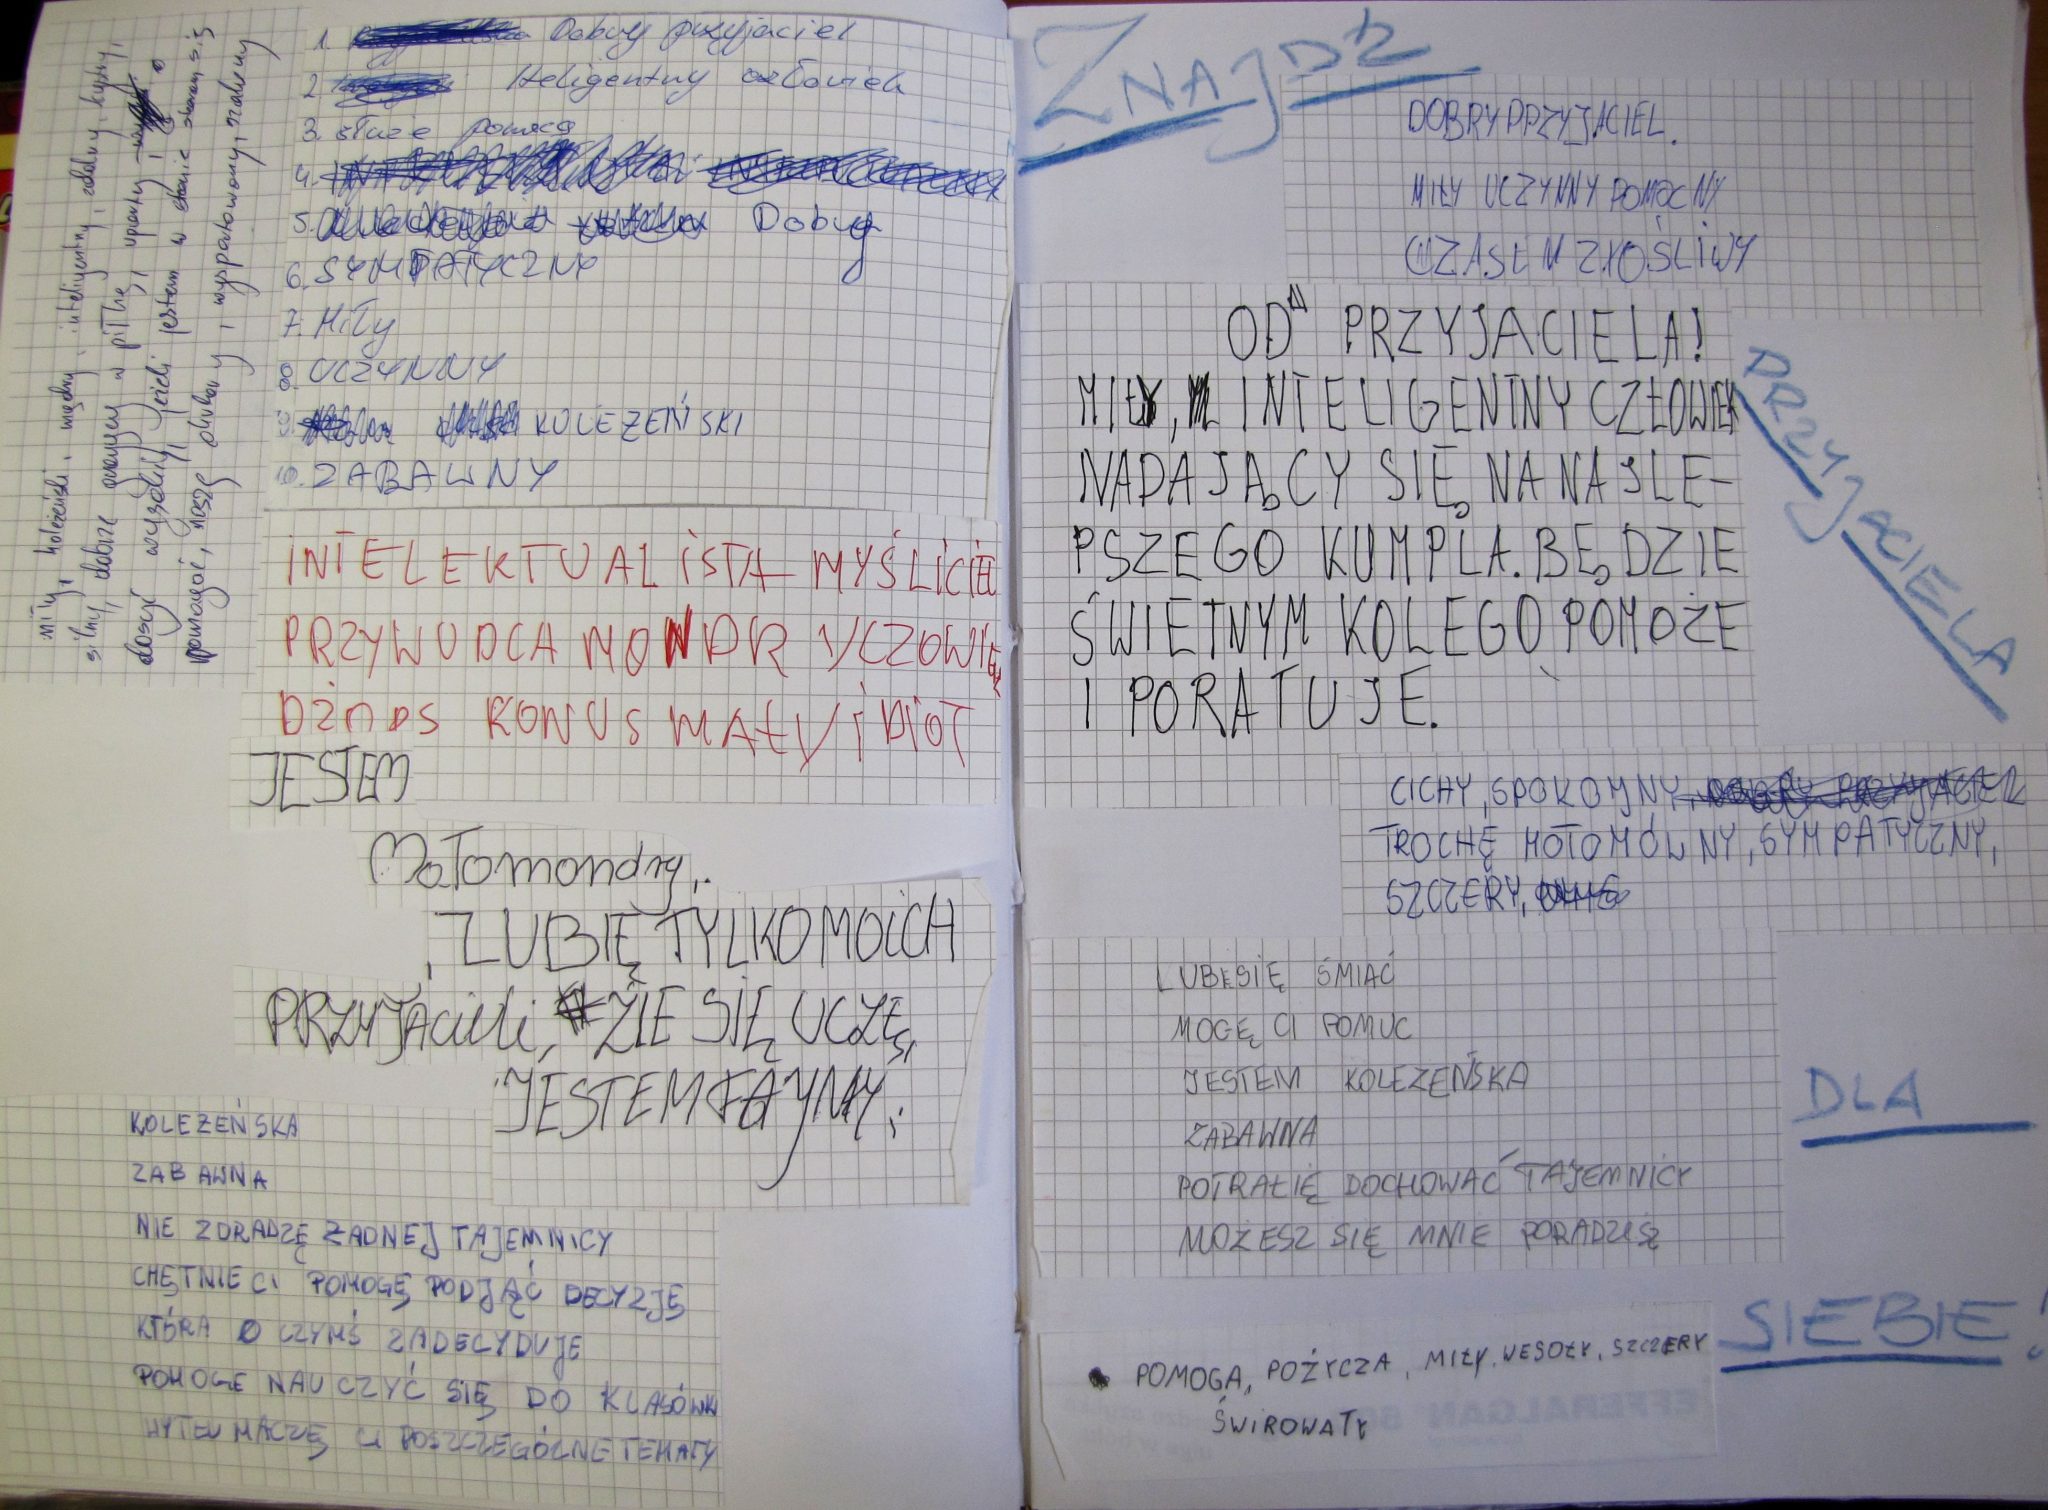 miły, koleżeński, mądry, inteligentny, zdolny,
silny, dobrze
dosyć
pomagać, noszę okulary, wysportowany, zabawny
1. Dobry przyjaciel
2. Iteligentny człowiek
3. służe pomocą
4.
5. Dobry
6. SYMPATYCZNY
7. Miły
8. UCZYNNY
9. KOLEŻEŃSKI
10. ZABAWNY
INTELEKTUALISTA MYŚLICIEL
PRZYWUDCA MONDR Y CZOWIĘ
KONUS MAŁY IDIOT
JESTEM
Małomondry,
LUBIĘ TYLKO MOICH
PRZYJACIELI, ŹLE SIĘ UCZĘ,
JESTEM FAJNY,
KOLEŻEŃSKA
ZABAWNA
NIE ZDRADZĘ ŻADNEJ TAJEMNICY
CHĘTNIE CI POMOGĘ PODJĄĆ DECYZJĘ
KTÓRA O CZYMŚ ZADECYDUJE
POMOGE NAUCZYĆ SIĘ DO KLASÓWKI
WYTŁUMACZĘ CI POSZCZEGÓLNE TEMATY
ZNAJDŹ
DOBRY PPZYJACIEL.
MIŁY UCZYNNY POMOCNY
CZASEM ZŁOŚLIWY
OD PRZYJACIELA!
MIŁY, INTELIGENTNY CZŁOWIEK
NADAJĄCY SIĘ NA NAJLE-
PSZEGO KUMPLA. BĘDZIE
ŚWIETNYM KOLEGO POMOŻE
I PORATUJE.
PRZYJACIELA
CICHY, SPOKOJNY,
TROCHĘ MOŁOMÓWNY, SYMPATYCZNY,
SZCZERY,
LUBESIĘ ŚMIAĆ
MOGĘ CI POMUC
JESTEM KOLEŻEŃSKA
ZABAWNA
POTRAŁIĘ DOCHOWAĆ TAJEMNICY
MOŻESZ SIĘ MNIE PORADZIŚ
DLA
SIEBIE!
POMOGA, POŻYCZA, MIŁY, WESOŁY, SZCZERY
ŚWIROWATY